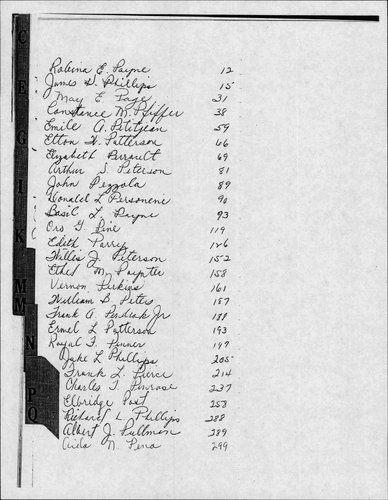 C
E
G
I
K
MM
N
PQ
Robena E. Payne 12
James D. Phillips 15
May E. Page 31
Constance M. Pfiffer 38
Emile A. Petitjean 59
Elton H. Patterson 66
Elizabeth Perrault 69
Arthur S. Peterson 81
John Pezzola 89
Donald L Personene 90
Basil L. Payne 93
Oro G. Pine 119
Edith Parry 126
Willis J. Peterson 152
Ethel M. Paynter 158
Vernon Perkins 161
William B. Peters 187
Frank A. Jr 188
Ermel L Patterson 193
Royal F. Penner 197
Duke L Phillips 205
Frank L. Pierce 214
Charles T. Penrose 237
Elbridge Post 253
Richard L. Phillips 288
Albert J. Pullman 289
Cirda N. Pena 299